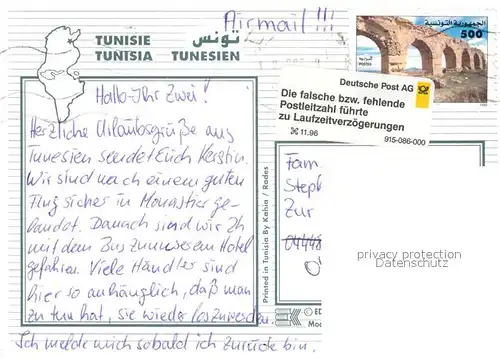 Airmail!!!
TUNISIE تونس
TUNISIA TUNESIEN
الجمهورية التونسية
500
Deutsche Post AG
Die falsche bzw. fehlende
Postleitzahl führte
zu Laufzeitverzögerungen
11.96 915-086-000
Hallo Ihr Zwei!
Herzliche Urlaubsgrüße aus
Tunesien sendet Euch Kerstin.
Wir sind nach einem guten
Flug sicher in Monastir ge-
landet. Danach sind wir 2h
mit dem Bus zu unserem Hotel
gefahren. Viele Händler sind
hier so anhänglich, daß man
zu tun hat, sie wieder loszuwerden.
Ich melde mich sobald ich zurück bin.
Printed in Tunisia By Kahia / Rades
Fam
Steph
Zur
04448
privacy protection
Datenschutz
© ED
Mod